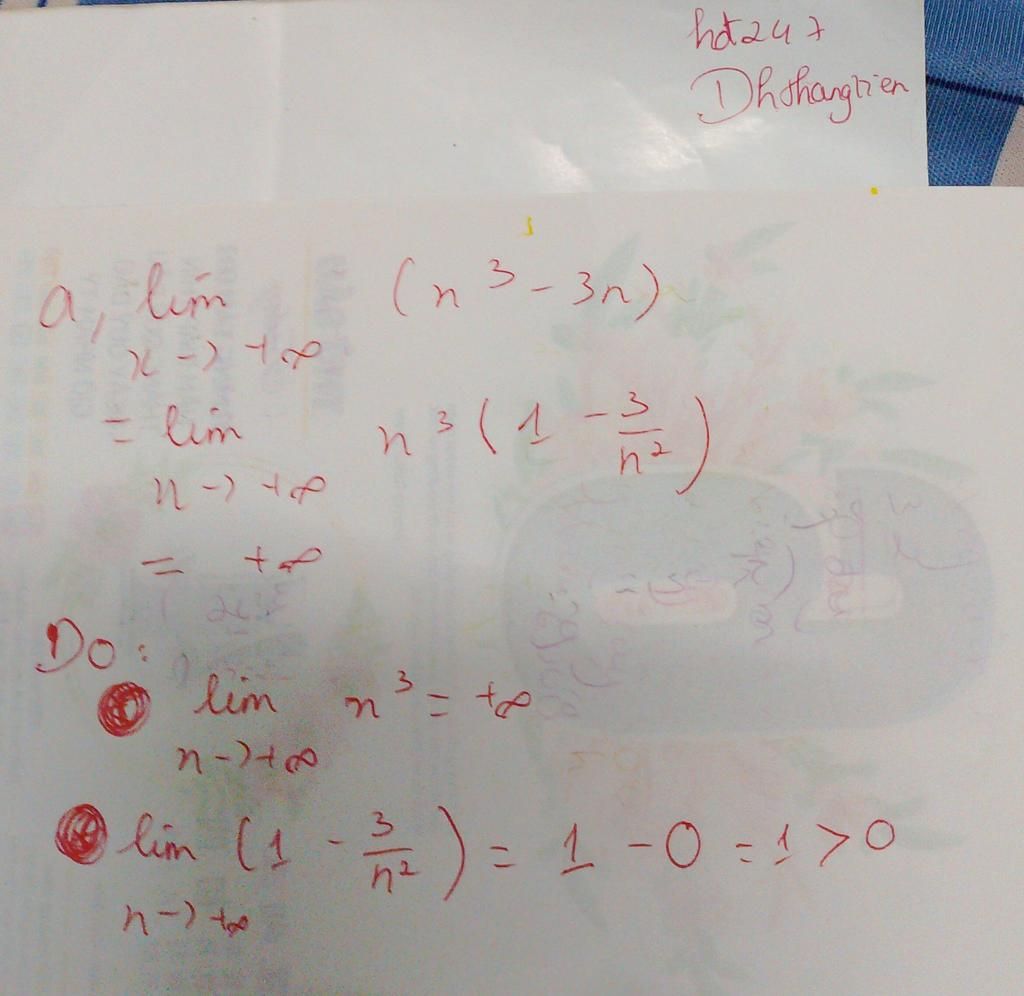 hdt247
Dhthangtien
a, lim (n³ - 3n)
x -> +∞
= lim n³ (1 - 3/n²)
n -> +∞
= +∞
Do:
lim n³ = +∞
n -> +∞
lim (1 - 3/n²) = 1 - 0 = 1 > 0
n -> +∞